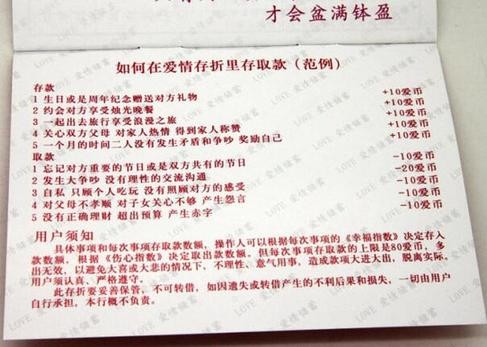 才会盆满钵盈
如何在爱情存折里存取款（范例）
存款
1 生日或是周年纪念赠送对方礼物 +10爱币
2 约会对方享受烛光晚餐 +10爱币
3 一起出去旅行享受浪漫之旅 +10爱币
4 关心双方父母 对家人热情 得到家人称赞 +10爱币
5 一个月的时间二人没有发生矛盾和争吵 奖励自己 +10爱币
取款
1 忘记对方重要的节日或是双方共有的节日 -10爱币
2 发生大争吵 没有理性的交流沟通 -20爱币
3 自私 只顾个人吃玩 没有照顾对方的感受 -10爱币
4 对父母不孝顺 对子女关心不够 产生怨言 -10爱币
5 没有正确理财 超出预算 产生赤字 -10爱币
用户须知
具体事项和每次事项存取款数额，操作人可以根据每次事项的《幸福指数》决定存入
款数额，根据《伤心指数》决定取出款数额。但每次事项存取款的上限是80爱币，多
出无效，以避免大喜或大悲的情况下，不理性、意气用事，造成款项大进大出，脱离实际。
用户须认真、严格遵守。
此存折要妥善保管，不可转借，如因遗失或转借产生的不利后果和损失，一切由用户
自行承担，本行概不负责。